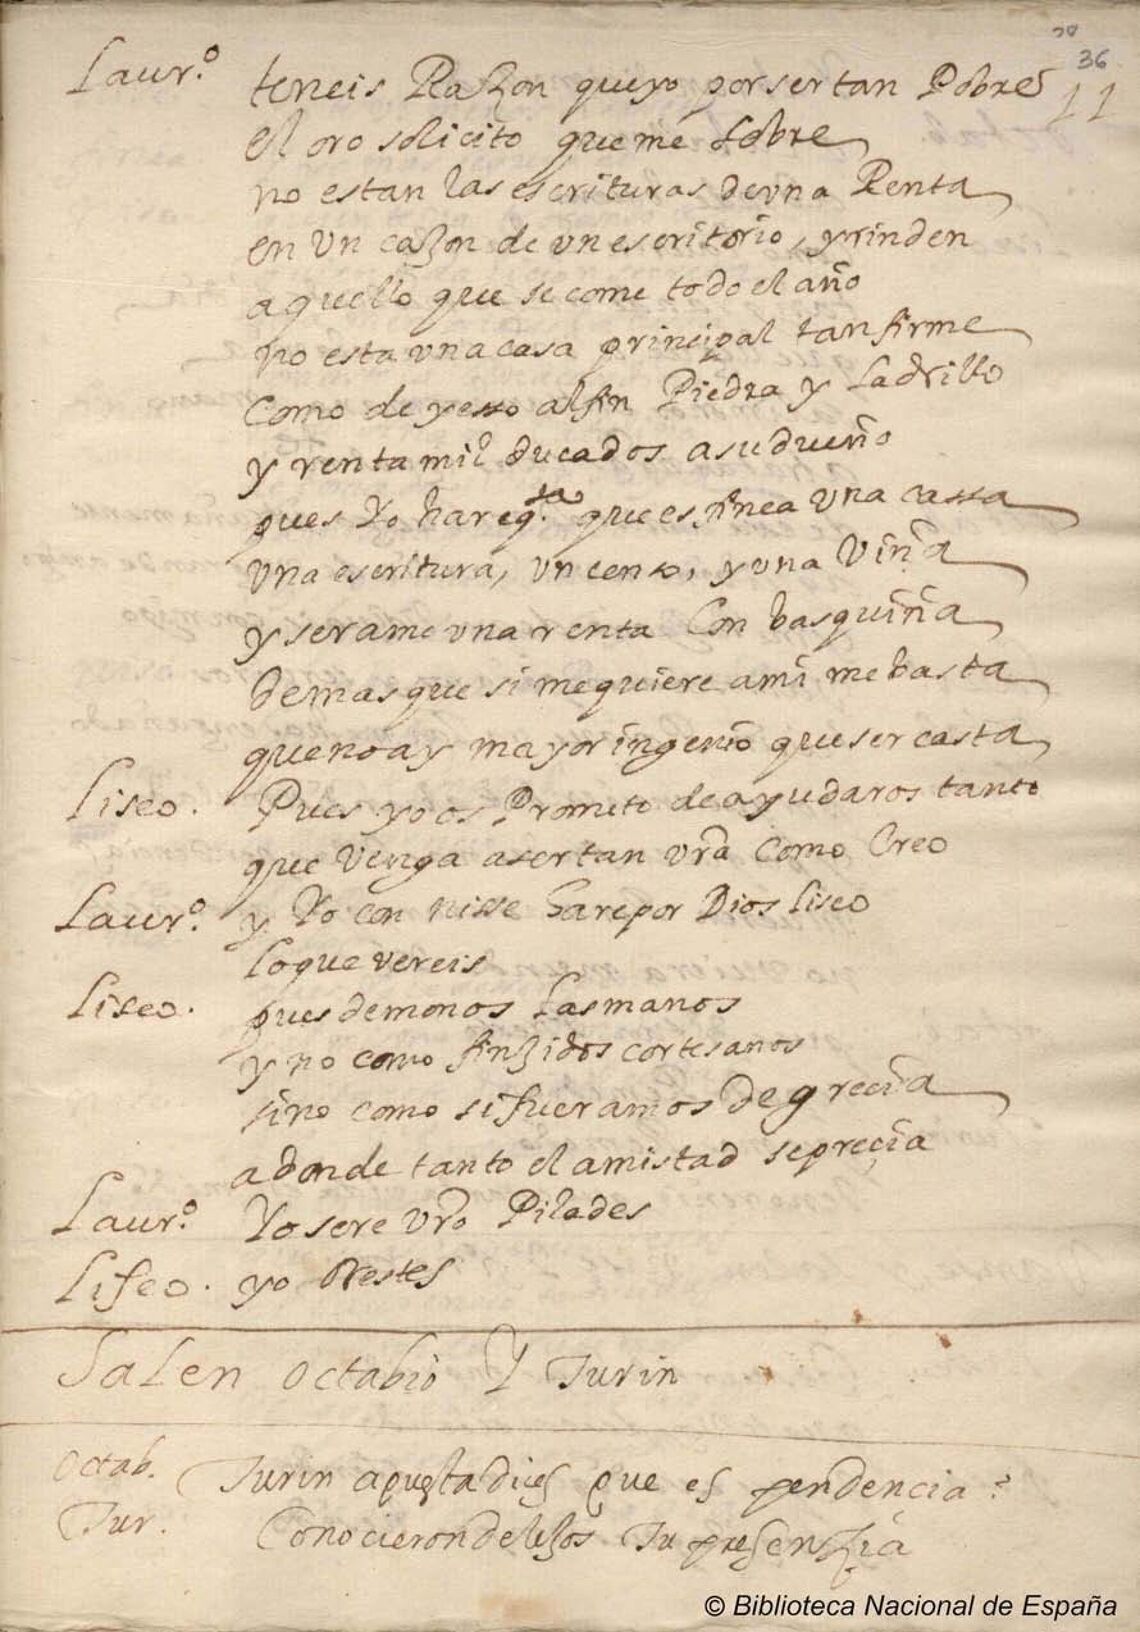 20
36
11
Laur.º teneis Raҫon queyo porsertan Pobre
el oro solicito queme sobre
no estan las escrituras deuna Renta
en Un caxon de vn escritorio, yrinden
aquello que se come todo el año
no esta vna casa principal tan firme
Como de yesso al fin Piedra y Ladrillo
y renta mil ducados asudueño
pues Yo hare q. que es finca vna cassa
vna escritura, vn censo, y vna Viña
y serame vna renta Con basquiña
demas que si mequiere ami mebasta
quenoay mayor ingenio queser casta
Liseo. Pues yo os Prometo deayudaros tanto
que Venga asertan vrã Como Creo
Laur.º y Yo con nisse Harepor Dios Liseo
loque vereis
Liseo. pues demonos Lasmanos
y no como finxidos cortesanos
sino como sifueramos de grecia
adonde tanto el amistad seprecia
Laur.º Yo sere vrõ Pilades
Liseo. yo Orestes
Salen Octabio Y Turin
Octab. Turin apuestadices que es pendencia?
Tur. Conocieron delexos Tu presenzia
© Biblioteca Nacional de España